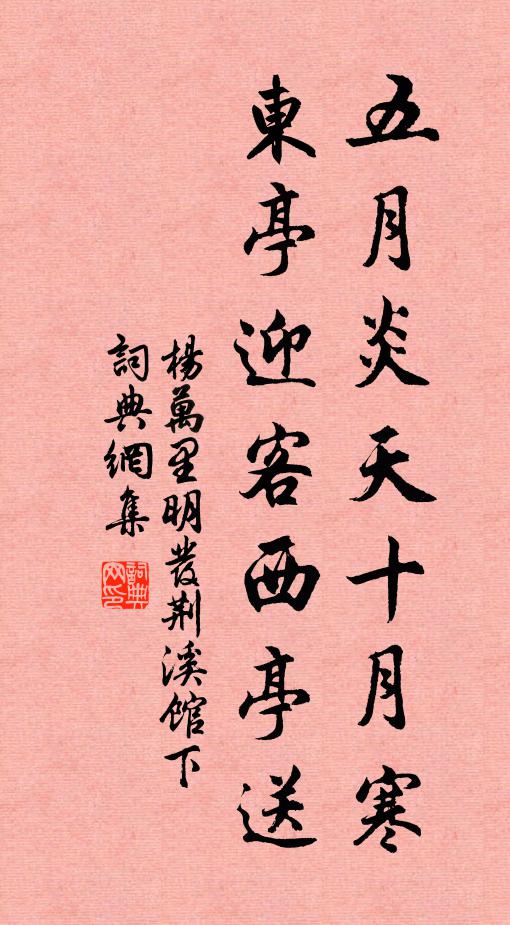 五月炎天十月寒
東亭迎客西亭送
楊萬里明發荆溪館下
詞典網集
詞典网印